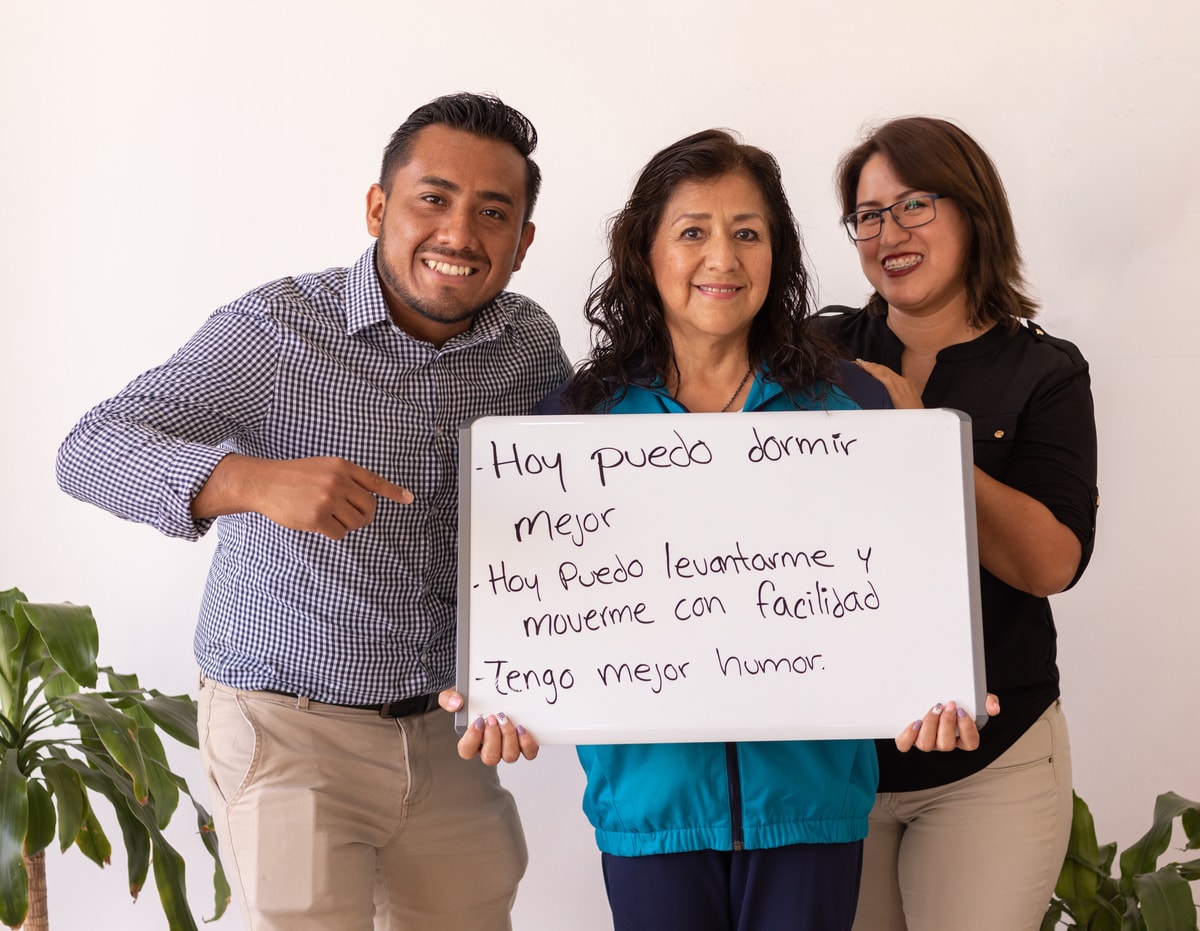 - Hoy puedo dormir
mejor
- Hoy Puedo levantarme y
moverme con facilidad
- Tengo mejor humor.